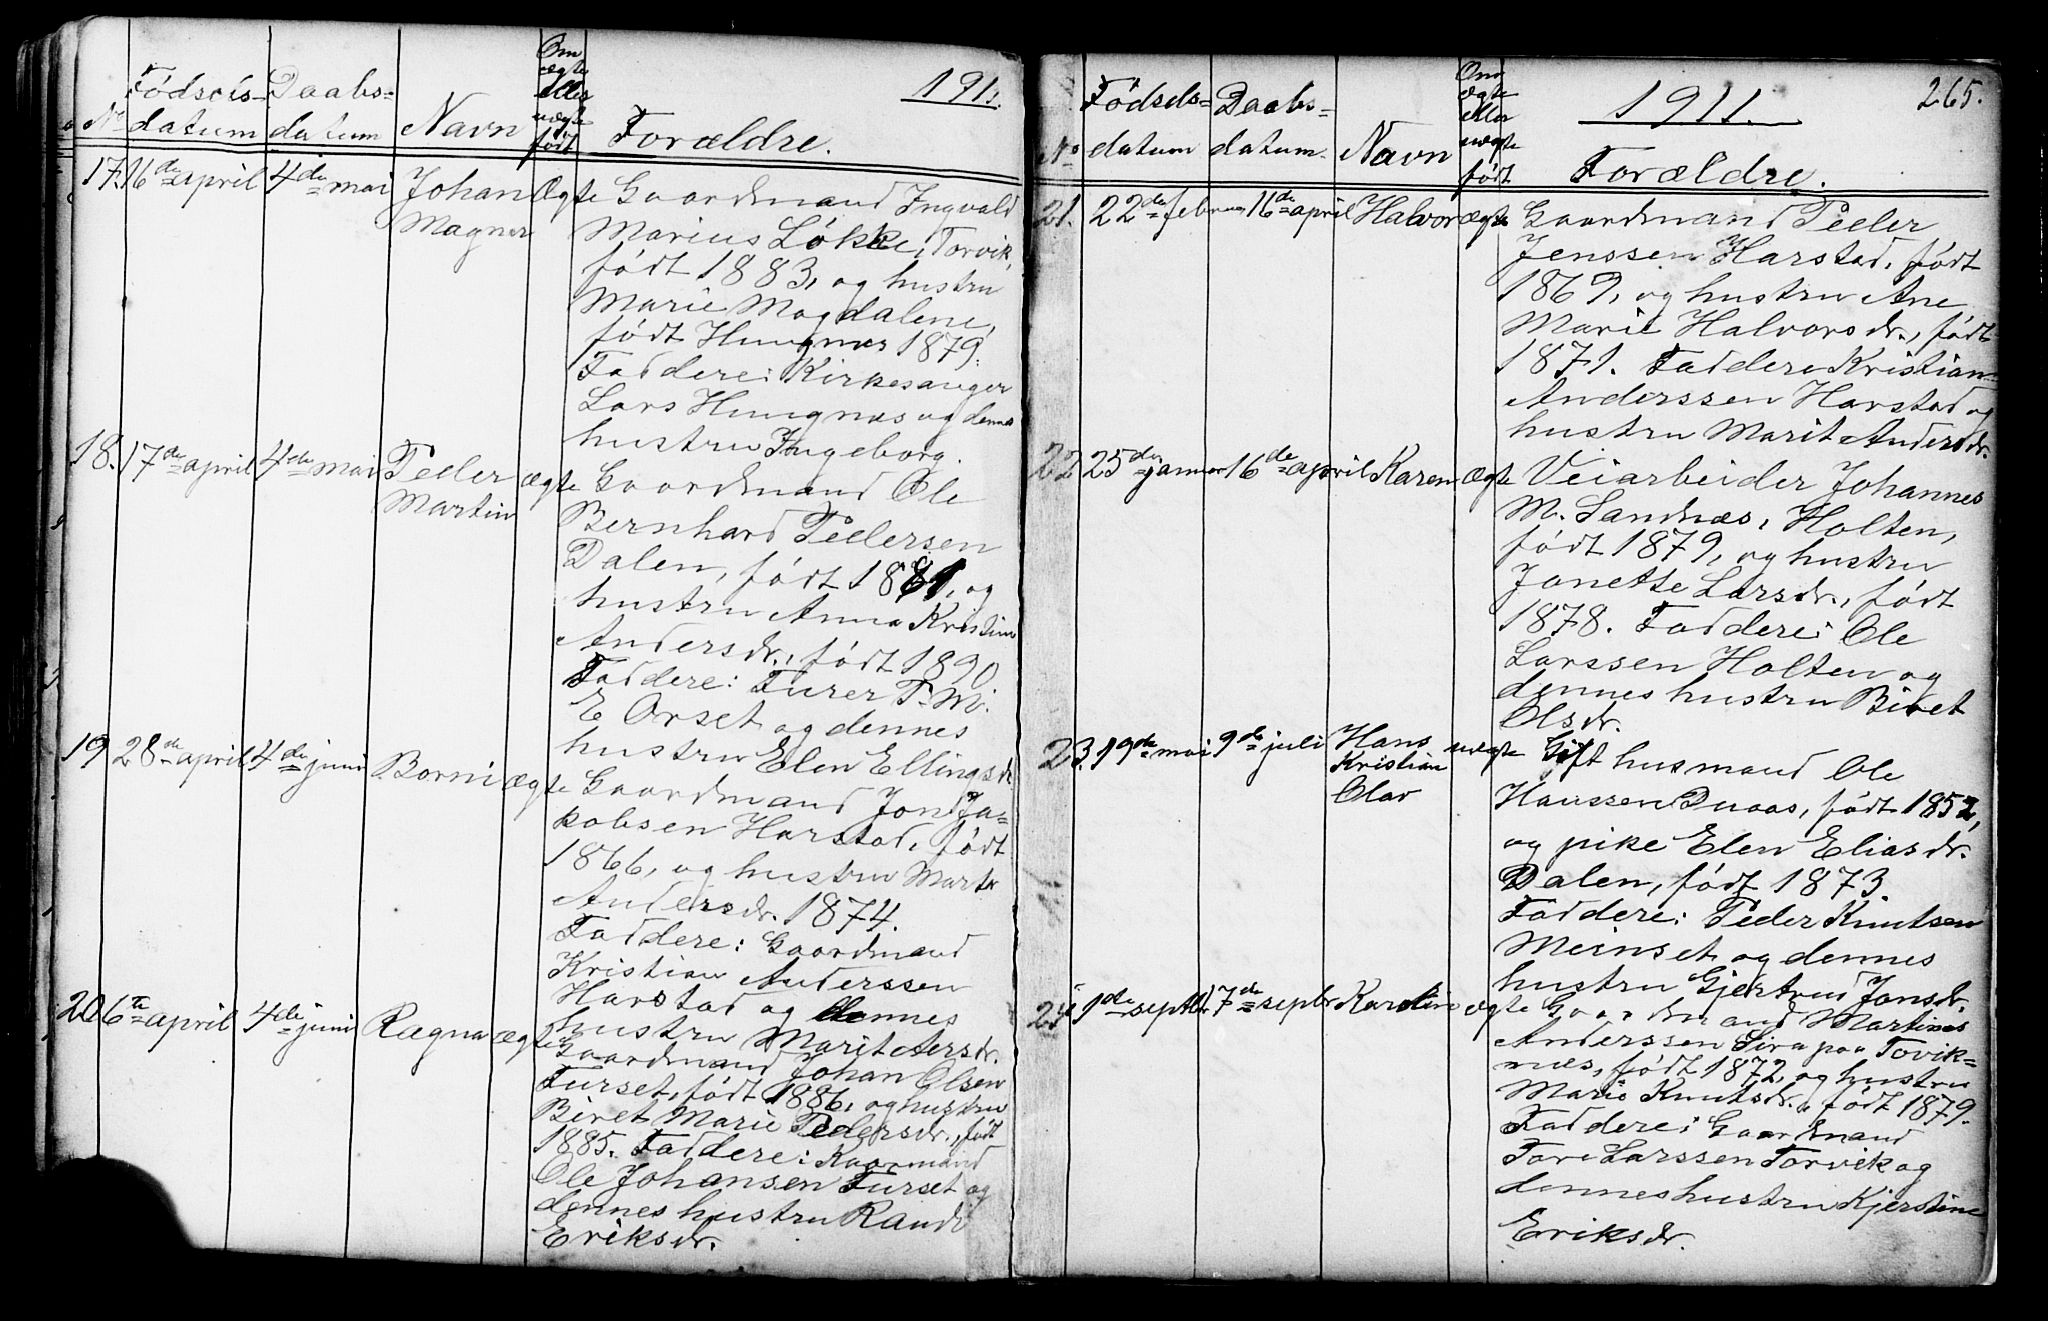 1911.
No
Fødsels-
datum
Daabs-
datum
Navn
Om
ægte
eller
uægte
født
Forældre.
17. 16de april 4de mai Johan Ægte Gaardmand Ingvald
Magnar Marius Løkke, Torvik,
født 1883, og hustru
Marie Magdalene,
født Hungnes 1879.
Faddere: Kirkesanger
Lars Hungnes og dennes
hustru Ingeborg.
18. 17de april 4de mai Peder ægte Gaardmand Ole
Martin Bernhard Pedersen
Dalen, født 1881, og
hustru Anna Kristine
Andersdr., født 1890
Faddere: Furer P. M.
E Orset og dennes
hustru Elen Ellingsdr.
19 28de april 4de juni Borni ægte Gaardmand Jon Ja-
kobsen Harstad, født
1866, og hustru Marte
Andersdr. 1874.
Faddere: Gaardmand
Kristian Anderssen
Harstad og dennes
hustru Marit Aersdr.
20 6te april 4de juni Rægna ægte Gaardmand Johan Olsen
Furset, født 1886, og hustru
Beret Marie Pedersdr., født
1885. Faddere: Kaarmand
Ole Johansen Furset og
dennes hustru Randi
Eriksdr.
265.
1911.
No
Fødsels-
datum
Daabs-
datum.
Navn
Om
ægte
eller
uægte
født
Forældre.
21. 22de februar 16de april Halvor ægte Gaardmand Peder
Jenssen Harstad, født
1869, og hustru Ane
Marie Halvorsdr., født
1871. Faddere Kristian
Anderssen Harstad og
hustru Marit Andersdr.
22 25de januar 16de april Karen Ægte Veiarbeider Johannes
M. Sandnæs, Holten,
født 1879, og hustru
Jonette Larsdr., født
1878. Faddere: Ole
Larssen Holten og
dennes hustru Beret
Olsdr.
23. 19de mai 9de juli Hans uægte Gift husmand Ole
Kristian Hanssen Duaas, født 1852,
Olav og pike Elen Eliasdr.
Dalen, født 1873
Faddere: Peder Knutsen
Meinset og dennes
hustru Gjertrud Jonsdr.
24 1de septbr 17de septbr Karoline ægte Gaardmand Martines
Anderssen Sira paa Tovik-
næs, født 1872, og hustru
Marie Knutsdr., født 1879.
Faddere: Gaardmand
Tore Larssen Torvik og
dennes hustru Kjerstine
Eriksdr.